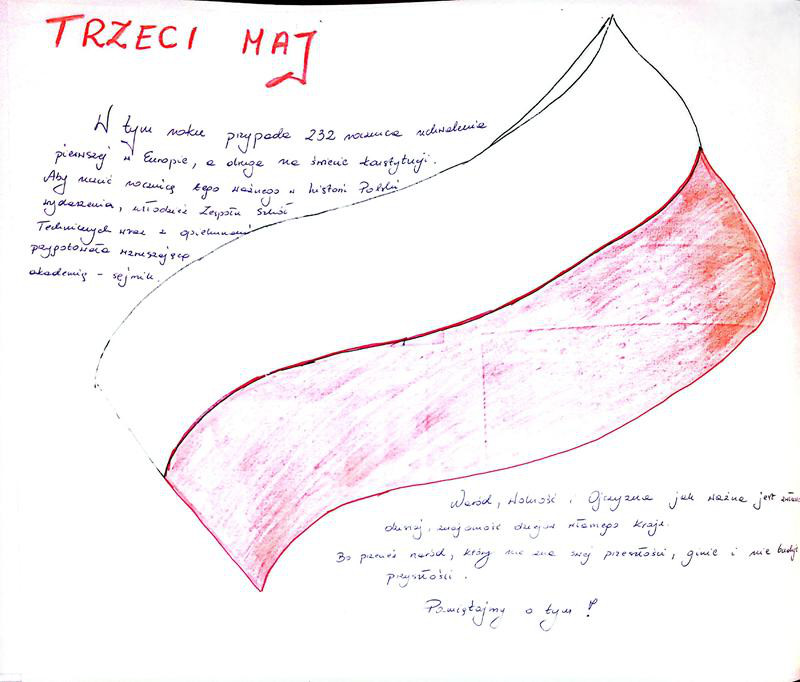 TRZECI MAJ
W tym roku przypada 232 rocznica uchwalenia
pierwszej w Europie, a druga na świecie konstytucji.
Aby uczcić rocznicę tego ważnego w historii Polski
wydarzenia, młodzież Zespołu Szkół
Technicznych wraz z opiekunami
przygotowała wzruszającą
akademię - sejmik.
Naród, Wolność i Ojczyzna jak ważna jest
dzisiaj, znajomość dziejów własnego kraju.
Bo przecież naród, który nie zna swej przeszłości, ginie i nie buduje
przyszłości.
Pamiętajmy o tym!